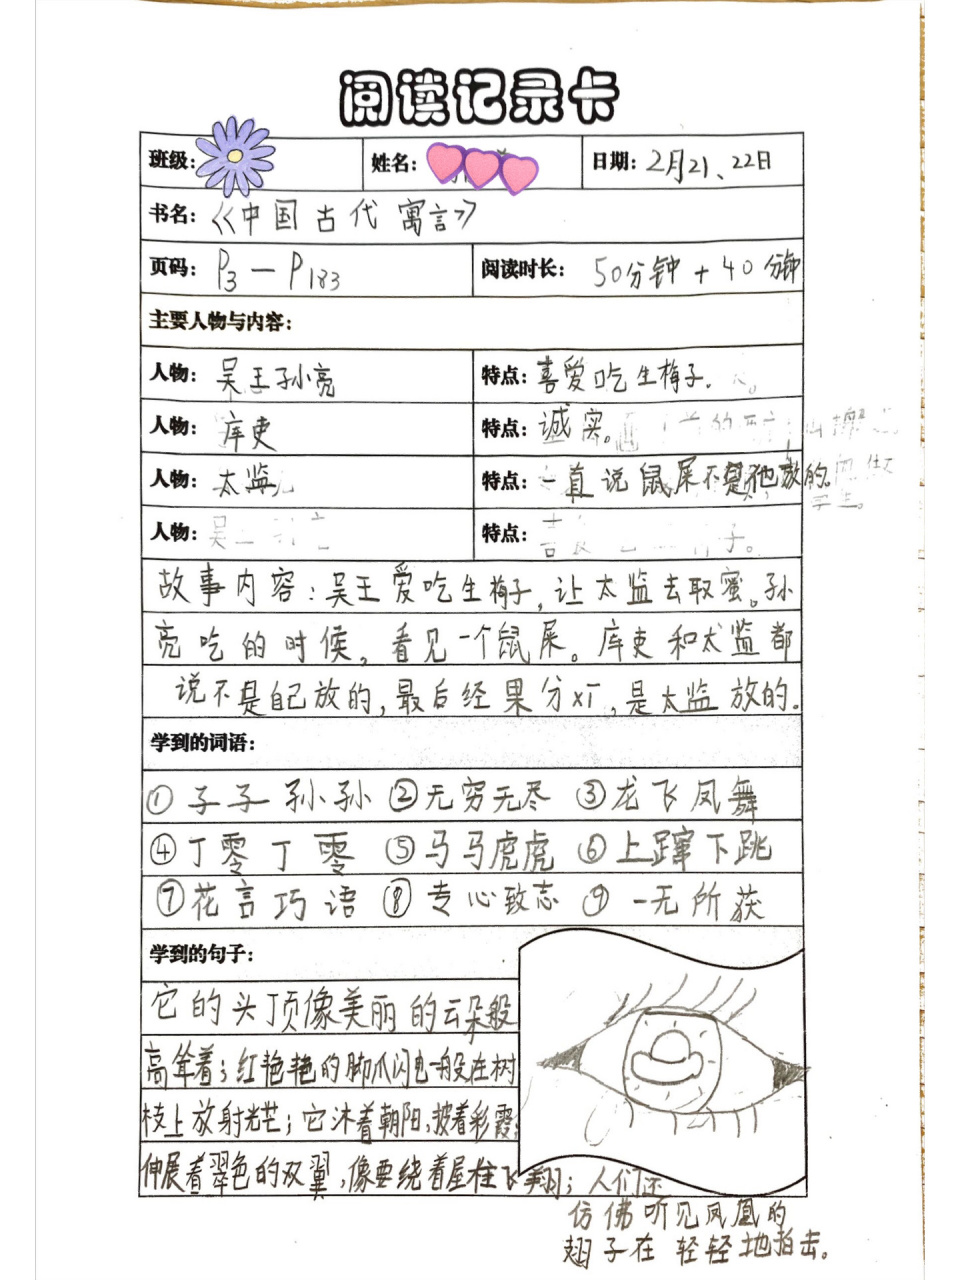 阅读记录卡
班级: 姓名: 日期: 2月21、22日
书名: 《中国古代寓言》
页码: P3 — P183 阅读时长: 50分钟 + 40分钟
主要人物与内容:
人物: 吴王孙亮 特点: 喜爱吃生梅子.
人物: 库吏 特点: 诚实。
人物: 太监 特点: 一直说鼠屎不是他放的.
人物: 特点:
故事内容:吴王爱吃生梅子,让太监去取蜜。孙
亮吃的时候,看见一个鼠屎。库吏和太监都
说不是自己放的,最后经果分析,是太监放的.
学到的词语:
①子子孙孙 ②无穷无尽 ③龙飞凤舞
④丁零丁零 ⑤马马虎虎 ⑥上蹿下跳
⑦花言巧语 ⑧专心致志 ⑨一无所获
学到的句子:
它的头顶像美丽的云朵般
高耸着;红艳艳的脚爪闪电一般在树
枝上放射光芒;它沐着朝阳,披着彩霞;
伸展着翠色的双翼,像要绕着屋柱飞翔;人们还
仿佛听见凤凰的
翅子在轻轻地拍击。